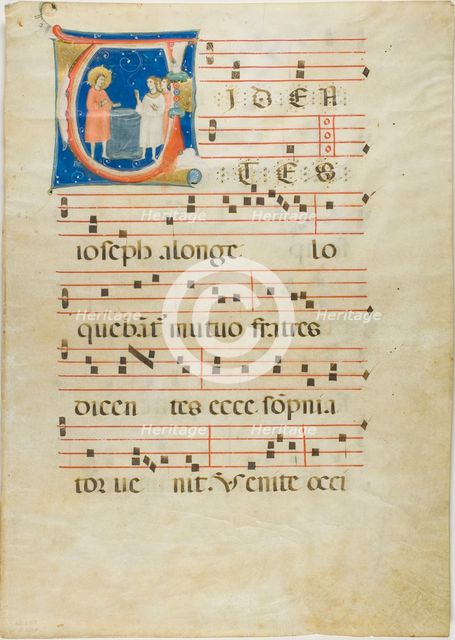 VIDEN
TES
Heritage Heritage
ioseph alonge. lo
Heritage Heritage
quebāt mutuo fratres
dicen tes ecce sōpnia
Heritage Heritage
tor ue nit. ℣ Uenite occi